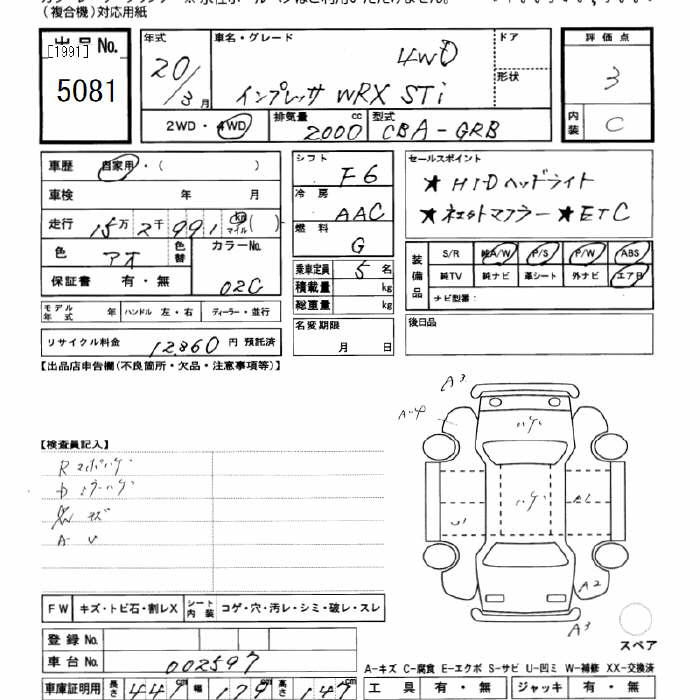 (複合機)対応用紙
出品No.
[1991]
5081
年式
20/3月
車名・グレード
4WD
インプレッサ WRX STi
ドア
形状
2WD・4WD
排気量
2000
cc
型式
CBA-GRB
評価点
3
内装
C
車歴
自家用・( )
車検
年 月
走行
15万2千991
km
マイル
( )
色
アオ
色替
カラーNo.
02C
保証書
有・無
モデル年式
年
ハンドル 左・右
ディーラー・並行
リサイクル料金
12,860円 預託済
シフト
F6
冷房
AAC
燃料
G
乗車定員
5名
積載量
kg
総重量
kg
名変期限
月 日
セールスポイント
★HIDヘッドライト
マフラー ★ETC
装備品
S/R
純A/W
P/S
P/W
ABS
純TV
純ナビ
革シート
外ナビ
エアB
ナビ型番:
後日品
【出品店申告欄(不良箇所・欠品・注意事項等)】
【検査員記入】
A3
A-4
ハゲ
ハゲ
U1
A2
A3
スペア
FW
キズ・トビ石・割レX
シート内装
コゲ・穴・汚レ・シミ・破レ・スレ
登録No.
車台No.
002597
A-キズ C-腐食 E-エクボ S-サビ U-凹ミ W-補修 XX-交換済
車庫証明用
長さ
447
cm
幅
179
cm
高さ
147
cm
工具
有・無
ジャッキ
有・無